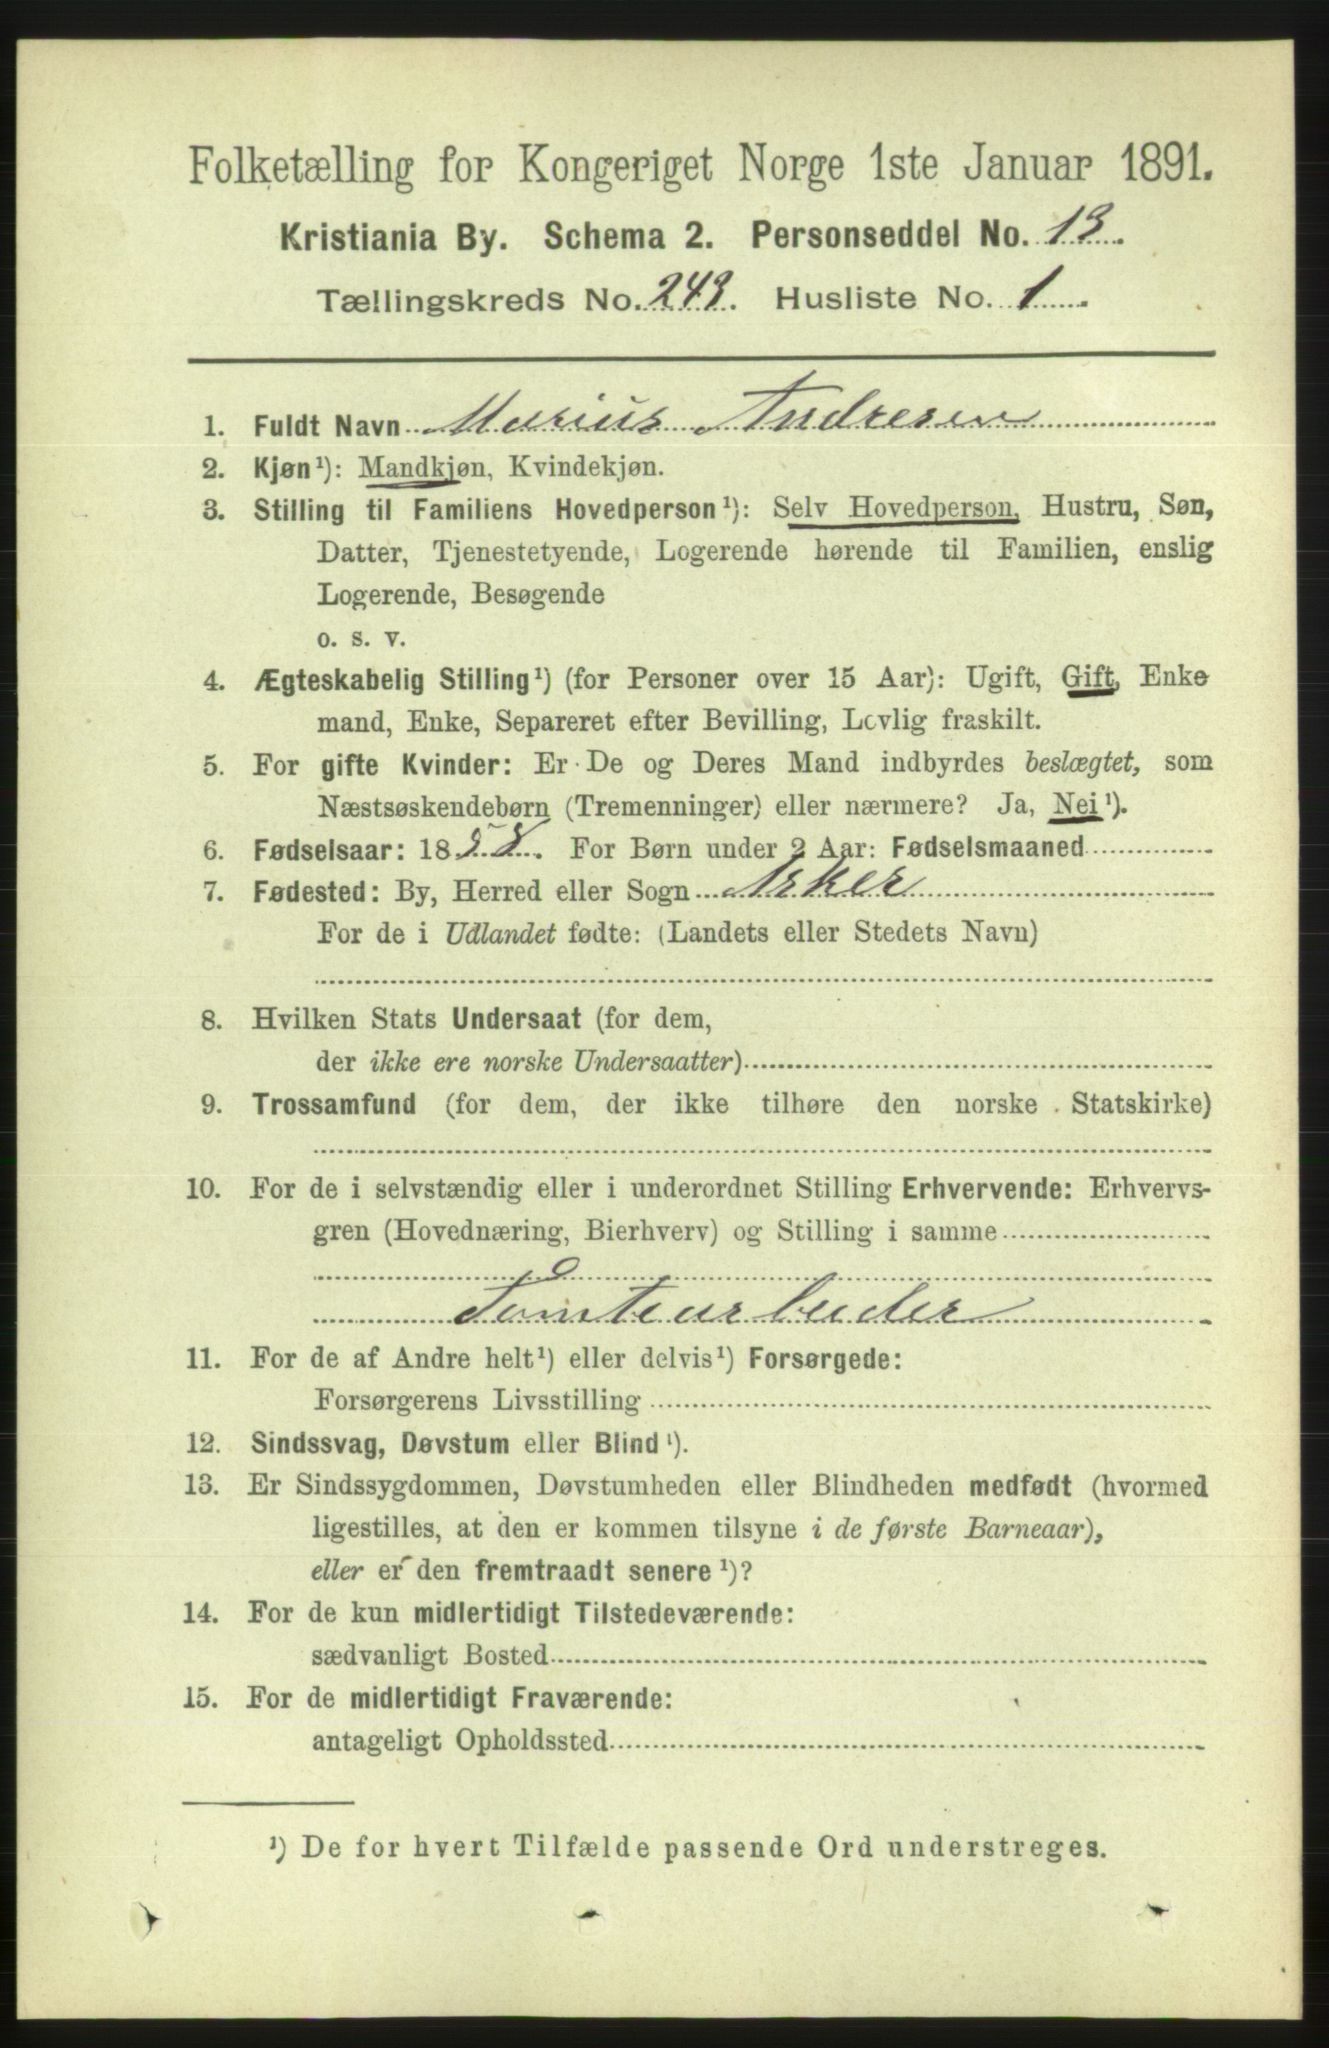 Folketælling for Kongeriget Norge 1ste Januar 1891.
Kristiania By. Schema 2. Personseddel No. 13.
Tællingskreds No. 243. Husliste No. 1
1. Fuldt Navn Marius Andresen
2. Kjøn¹): Mandkjøn, Kvindekjøn.
3. Stilling til Familiens Hovedperson¹): Selv Hovedperson, Hustru, Søn,
Datter, Tjenestetyende, Logerende hørende til Familien, enslig
Logerende, Besøgende
o. s. v.
4. Ægteskabelig Stilling¹) (for Personer over 15 Aar): Ugift, Gift, Enke
mand, Enke, Separeret efter Bevilling, Lovlig fraskilt.
5. For gifte Kvinder: Er De og Deres Mand indbyrdes beslægtet, som
Næstsøskendebørn (Tremenninger) eller nærmere? Ja, Nei¹).
6. Fødselsaar: 1858. For Børn under 2 Aar: Fødselsmaaned
7. Fødested: By, Herred eller Sogn Asker
For de i Udlandet fødte: (Landets eller Stedets Navn)
8. Hvilken Stats Undersaat (for dem,
der ikke ere norske Undersaatter)
9. Trossamfund (for dem, der ikke tilhøre den norske Statskirke)
10. For de i selvstændig eller i underordnet Stilling Erhvervende: Erhvervs-
gren (Hovednæring, Bierhverv) og Stilling i samme
Tomtearbeider
11. For de af Andre helt¹) eller delvis¹) Forsørgede:
Forsørgerens Livsstilling
12. Sindssvag, Døvstum eller Blind¹).
13. Er Sindssygdommen, Døvstumheden eller Blindheden medfødt (hvormed
ligestilles, at den er kommen tilsyne i de første Barneaar),
eller er den fremtraadt senere¹)?
14. For de kun midlertidigt Tilstedeværende:
sædvanligt Bosted
15. For de midlertidigt Fraværende:
antageligt Opholdssted
¹) De for hvert Tilfælde passende Ord understreges.